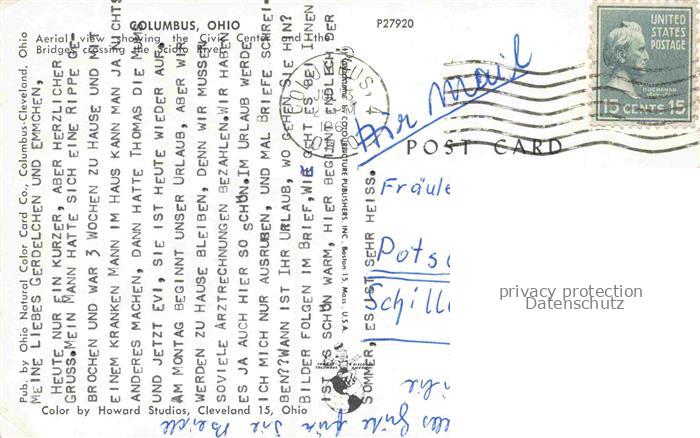 COLUMBUS, OHIO
Aerial view showing the Civic Center and the
Bridges crossing the Scioto River.
P27920
UNITED
STATES
POSTAGE
BUCHANAN
15 CENTS 15
Air Mail
POST CARD
Pub. by Ohio Natural Color Card Co., Columbus-Cleveland, Ohio
MEINE LIEBES GERDELCHEN UND EMMCHEN,
HEUTE NUR EIN KURZER, ABER HERZLICHER
GRUSS. MEIN MANN HATTE SICH EINE RIPPE GE-
BROCHEN UND WAR 3 WOCHEN ZU HAUSE UND MIT
EINEM KRANKEN MANN IM HAUS KANN MAN JA NICHTS
ANDERES MACHEN, DANN HATTE THOMAS DIE MUMS
UND JETZT EVI, SIE IST HEUTE WIEDER AUF.
AM MONTAG BEGINNT UNSER URLAUB, ABER WIR
WERDEN ZU HAUSE BLEIBEN, DENN WIR MUSSEN
SOVIELE ÄRZTRECHNUNGEN BEZAHLEN. WIR HABEN
ES JA AUCH HIER SO SCHÖN. IM URLAUB WERDE
ICH MICH NUR AUSRUHEN, UND MAL BRIEFE SCHREI-
BEN?? WANN IST IHR URLAUB, WO GEHEN SIE HIN?
BILDER FOLGEN IM BRIEF, WIE GEHT ES BEI IHNEN
IST ES SCHÖN WARM, HIER BEGINNT ENDLICH DER
SOMMER, ES IST SEHR HEISS.
COLOURPICTURE PUBLISHERS, INC., Boston 15, Mass., U.S.A.
Fräule
Pots
Schill
privacy protection
Datenschutz
Color by Howard Studios, Cleveland 15, Ohio
alles Gute für Sie Beide